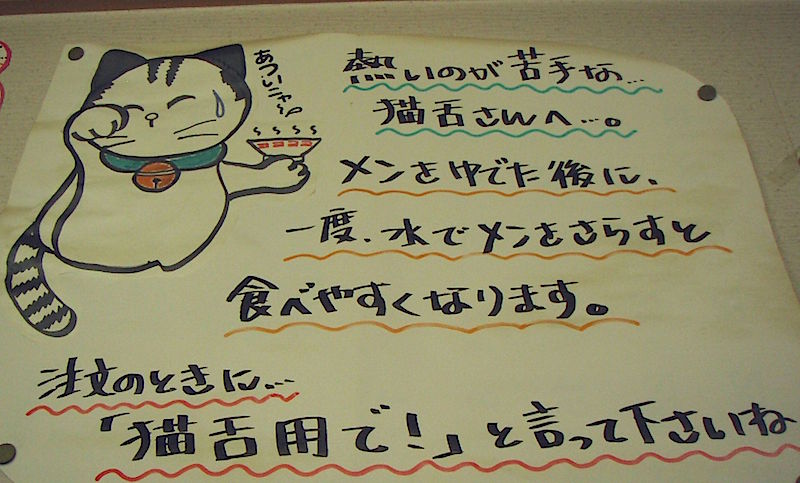 あついニャ〜
熱いのが苦手な…
猫舌さんへ…。
メンをゆでた後に、
一度、水でメンをさらすと
食べやすくなります。
注文のときに…
「猫舌用で!」と言って下さいね